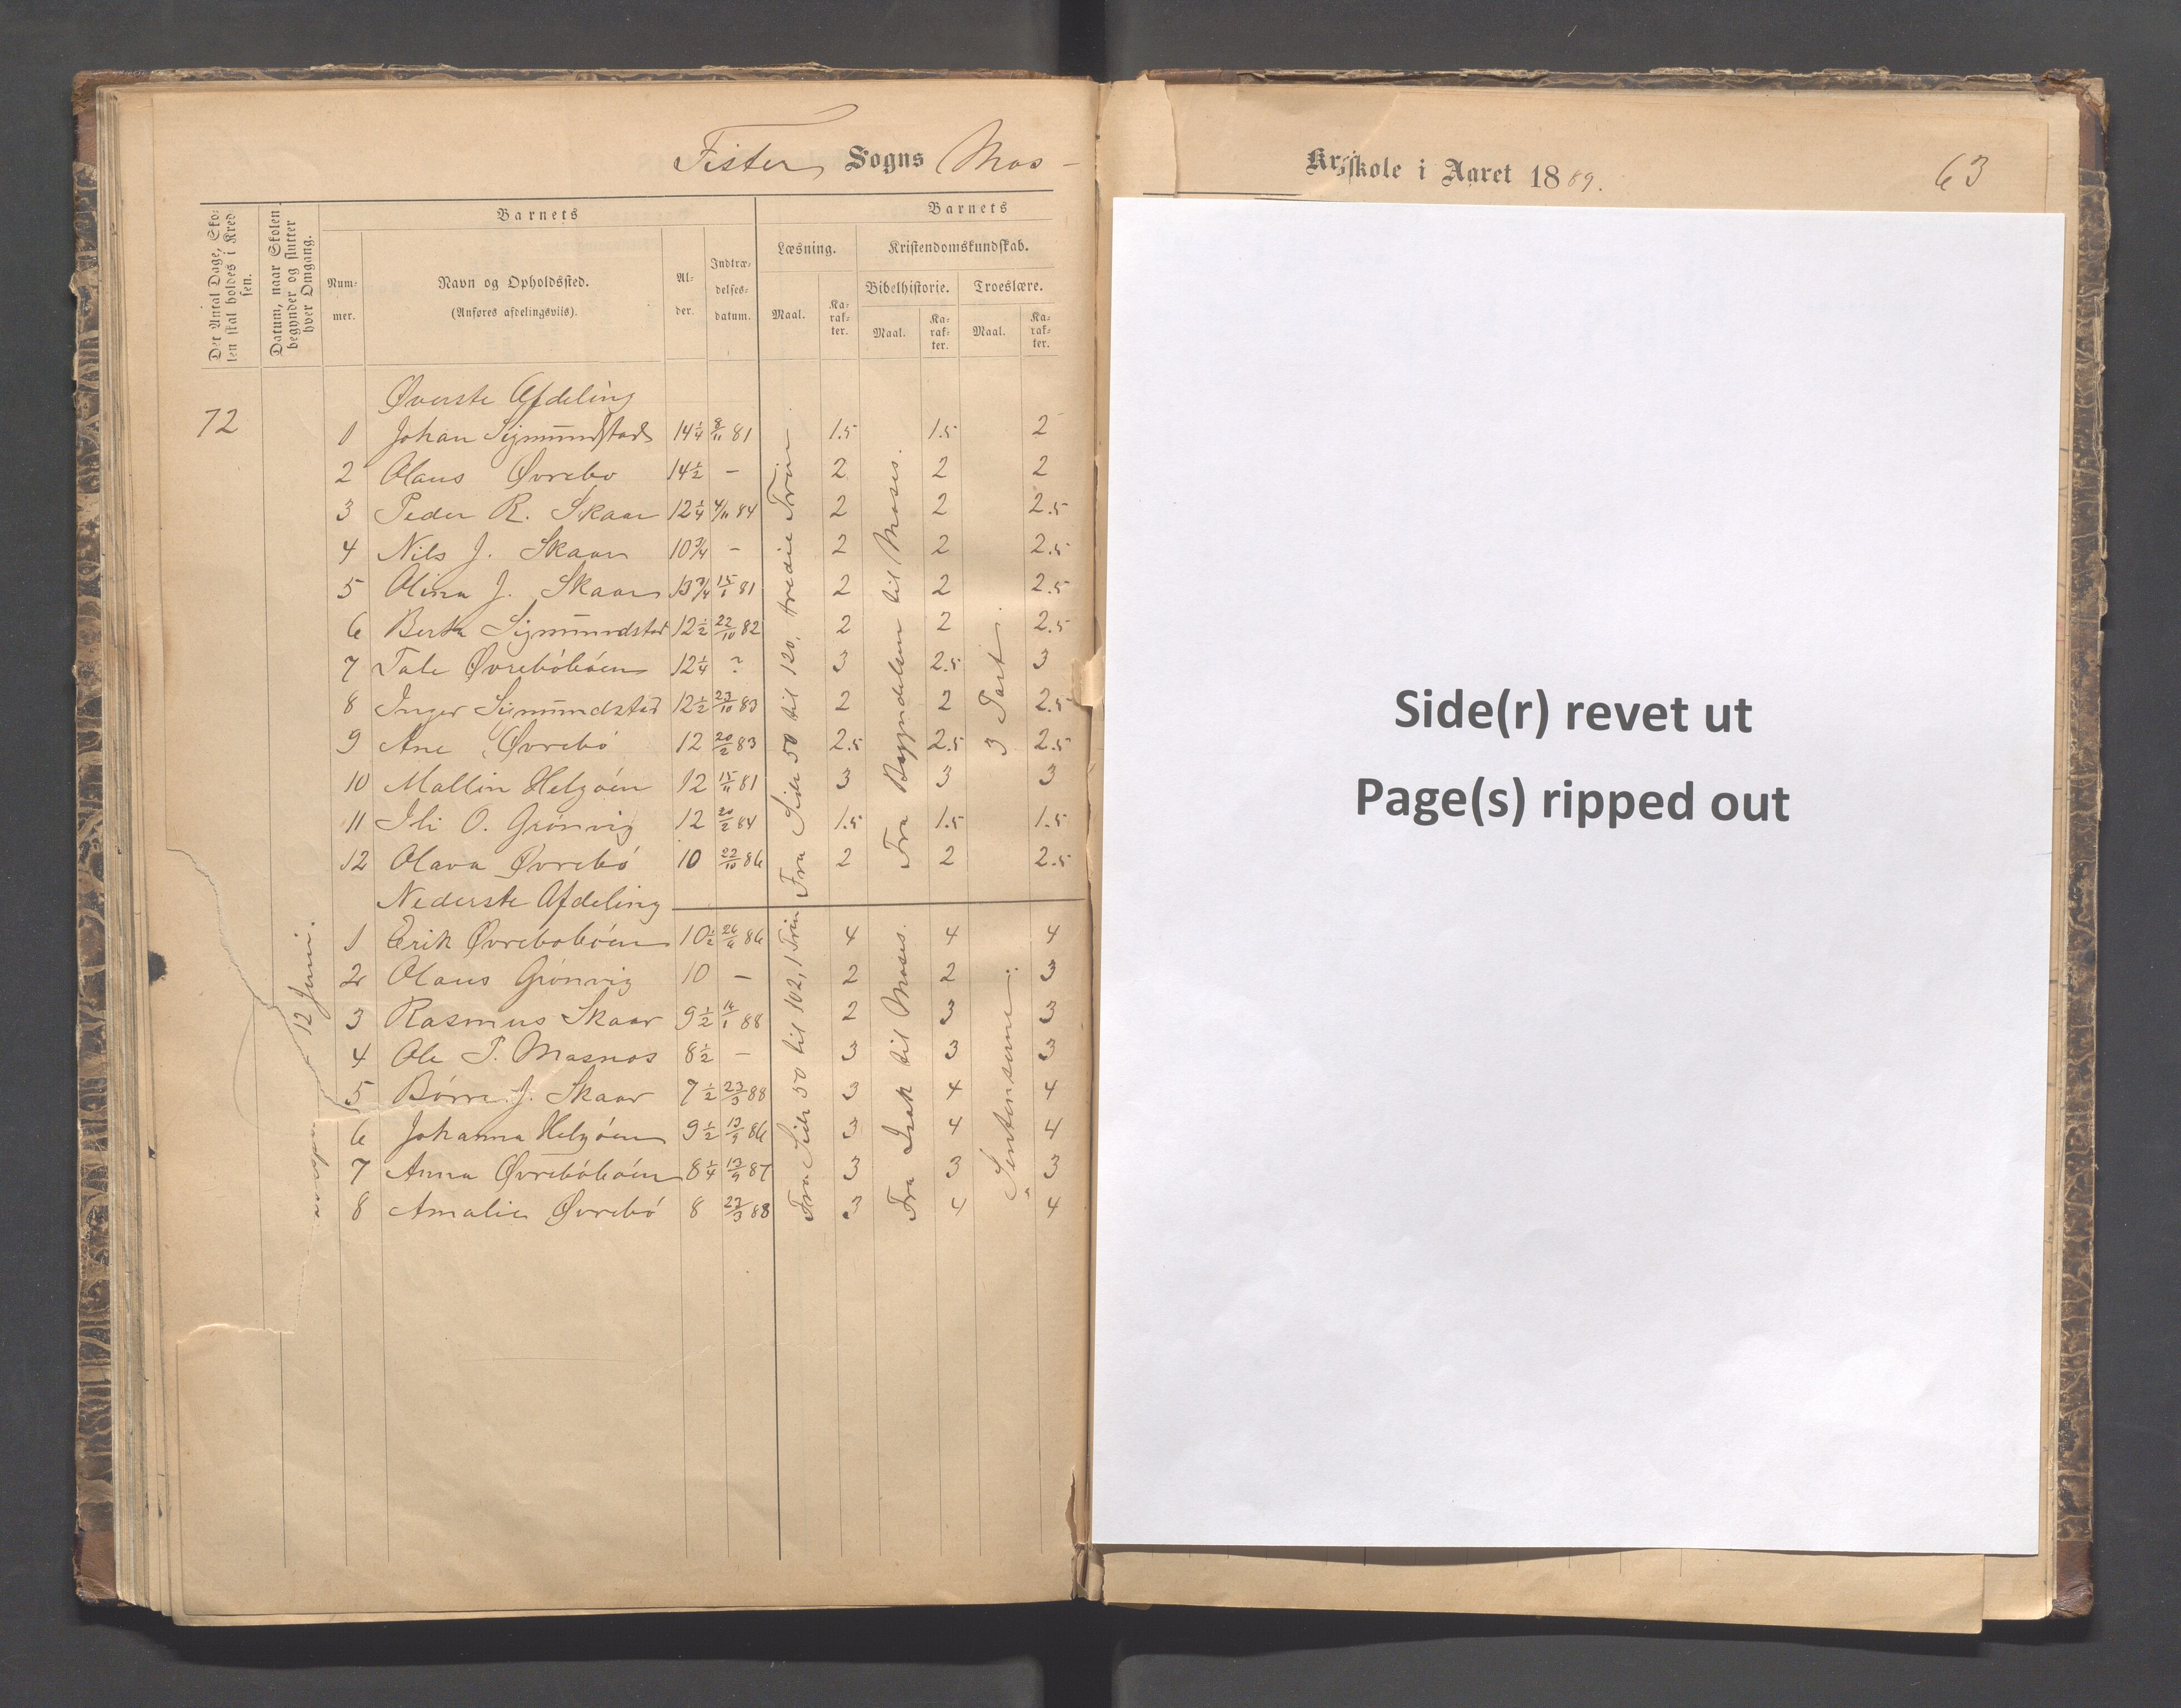 Fister Sogns Mos-
Kr skole i Aaret 1889.
63
Det Antal Dage, Sko-
len skal holdes i Kred-
sen.
Datum, naar Skolen
begynder og slutter
hver Omgang.
Barnets
Num-
mer.
Navn og Opholdssted.
(Anføres afdelingsviis).
Al-
der.
Indtræ-
delses-
datum.
Barnets
Læsning.
Maal.
Ka-
rak-
ter.
Kristendomskundskab.
Bibelhistorie.
Maal.
Ka-
rak-
ter.
Troeslære.
Maal.
Ka-
rak-
ter.
72
12 Juni.
Øverste Afdeling
1 Johan Sigmundstad 14 1/4 8/11 81 1.5 1.5 2
2 Olaus Øvrebo 14 1/2 - 2 2 2
3 Peder R. Skaar 12 1/4 4/11 84 2 2 2.5
4 Nils J. Skaar 10 3/4 - 2 2 2.5
5 Olina J. Skaar 13 3/4 15/6 81 2 2 2.5
6 Berta Sigmundstad 12 1/2 22/10 82 2 2 2.5
7 Tale Øvrebóbóen 12 1/4 ? 3 2.5 3
8 Inger Sigmundstad 12 1/2 23/10 83 2 2 2.5
9 Ane Øvrebó 12 20/2 83 2.5 2.5 2.5
10 Mallin Helgóen 12 15/11 81 3 3 3
11 Ili O. Grónvig 12 20/2 84 1.5 1.5 1.5
12 Olava Øvrebó 10 22/10 86 2 2 2.5
Fra Side 50 til 120, tredie Trin
Fra Begyndelsen til Moses.
3 Part.
Nederste Afdeling
1 Erik Øvrebobóen 10 1/2 26/4 86 4 4 4
2 Olaus Grónvig 10 - 2 2 3
3 Rasmus Skaar 9 1/2 14/1 88 2 3 3
4 Ole P. Masnos 8 1/2 - 3 3 3
5 Bórre J. Skaar 7 1/2 23/3 88 3 4 4
6 Johanna Helgóen 9 1/2 13/9 86 3 4 4
7 Anna Øvrebóbóen 8 1/4 13/9 87 3 3 3
8 Amalie Øvrebó 8 23/3 88 3 4 4
Fra Side 50 til 102, 1 Trin
Fra Isak til Moses.
Sentenserne
Side(r) revet ut
Page(s) ripped out